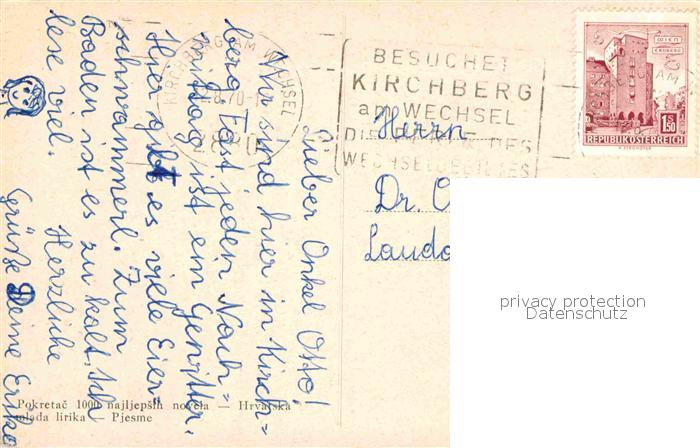 Lieber Onkel Otto!
Wir sind hier in Kirch=
berg. Fast jeden Nach=
mittag ist ein Gewitter.
Hier gibt es viele Eier=
schwammerl. Zum
Baden ist es zu kalt. Ich
lese viel.
Herzliche
Grüße Deine Erika
KIRCHBERG AM WECHSEL
BESUCHET
KIRCHBERG
am WECHSEL
DIE DES
WECHSELGEBIETES
WIEN
ERDBERG
1.50
REPUBLIK ÖSTERREICH
Herrn
Dr. O
Laudo
privacy protection
Datenschutz
Pokretač 1000 najljepših novela — Hrvatska
mlada lirika — Pjesme